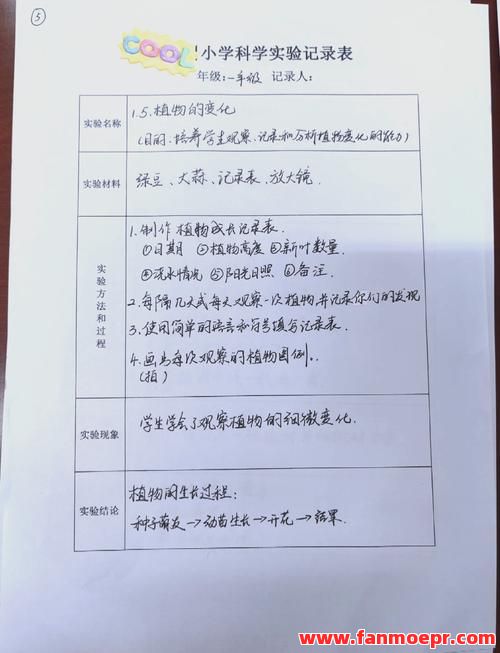 ⑤
COOL
小学科学实验记录表
年级:一年级 记录人:
实验名称
1.5.植物的变化
(目的:培养学生观察、记录和分析植物变化的能力)
实验材料
绿豆、大蒜、记录表、放大镜.
实验方法和过程
1.制作植物成长记录表.
①日期 ②植物高度 ③新叶数量.
④浇水情况 ⑤阳光日照 ⑥备注.
2.每隔几天或每天观察一次植物,并记录你们的发现
3.使用简单的语言和符号填写记录表.
4.画与每次观察的植物图例.
(拍)
实验现象
学生学会了观察植物的细微变化.
实验结论
植物的生长过程:
种子萌发→幼苗生长→开花→结果.
www.fanmoepr.com